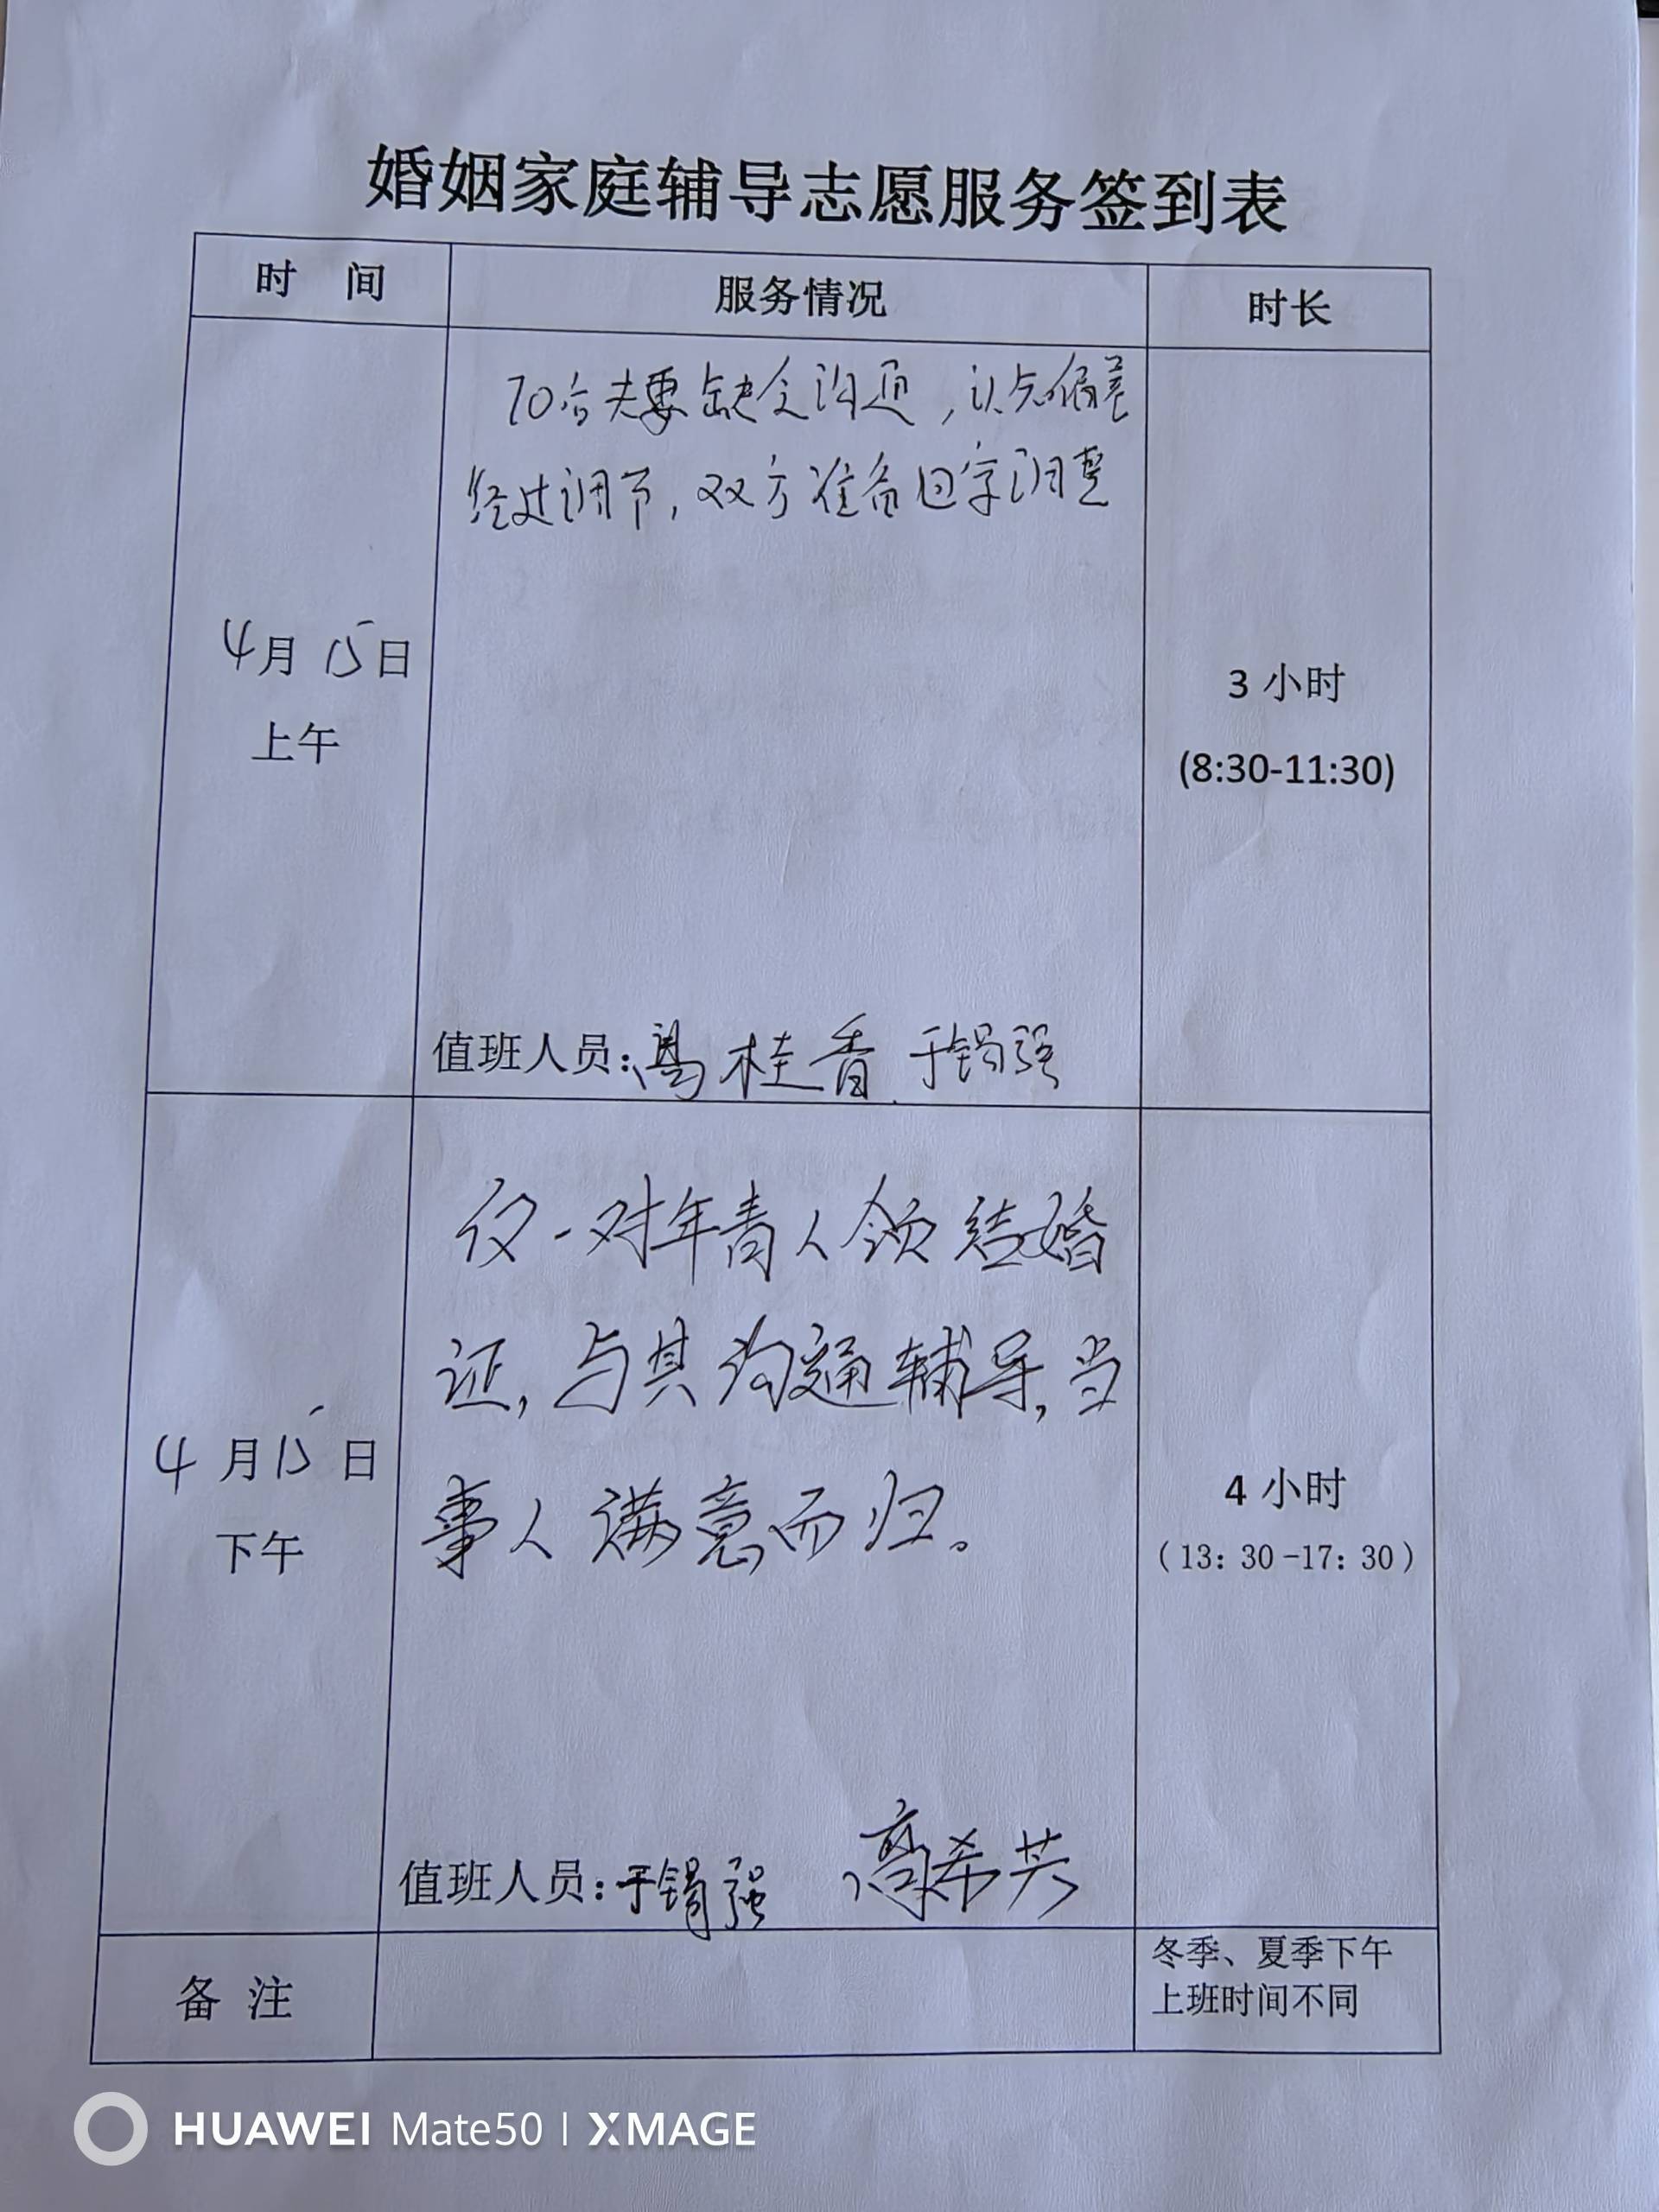 婚姻家庭辅导志愿服务签到表
时 间
服务情况
时长
4月15日
上午
70后夫妻缺乏沟通,认知偏差
经过调节,双方准备回家调整
值班人员:高桂香 于锡强
3 小时
(8:30-11:30)
4月15日
下午
仅一对年青人领结婚
证,与其沟通辅导,当
事人满意而归。
值班人员:于锡强 高希芸
4 小时
(13:30-17:30)
备 注
冬季、夏季下午
上班时间不同
HUAWEI Mate50 | XMAGE